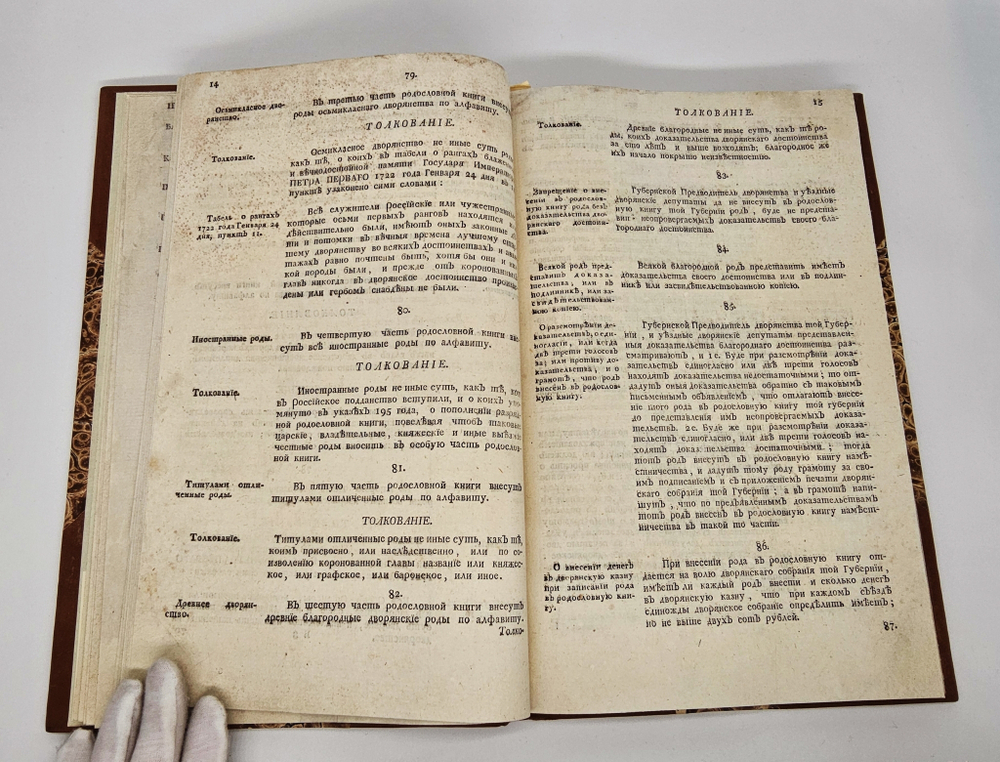 14
79.
Осьмикласное дво-
рянство.
Въ третью часть родословной книги внесутъ
роды осьмикласнаго дворянства по алфавиту.
ТОЛКОВАНІЕ.
Толкованіе.
Осмикласное дворянство не иные суть роды,
какъ тѣ, о коихъ въ табели о рангахъ блаженной
и вѣчнодостойной памяти Государя Императора
ПЕТРА ПЕРВАГО 1722 года Генваря 24 дня въ
пунктѣ узаконено сими словами:
Табель о рангахъ
1722 года Генваря 24
дня, пунктъ 11.
Всѣ служители Россійскіе или чужестранные,
которые осьми первыхъ ранговъ находятся
дѣйствительно были, имѣютъ оныхъ законные дѣ-
ти и потомки въ вѣчныя времена лучшему стар-
шему дворянству во всякихъ достоинствахъ и аван-
тажахъ равно почтены быть, хотя бы они и
кой породы были, и прежде отъ коронованныхъ
главъ никогда въ дворянское достоинство произве-
дены или гербомъ снабдены не были.
80.
Иностранные роды.
Въ четвертую часть родословной книги вне-
сутъ всѣ иностранные роды по алфавиту.
ТОЛКОВАНІЕ.
Толкованіе.
Иностранные роды не иные суть, какъ тѣ, кои
въ Россійское подданство вступили, и о коихъ упо-
мянуто въ указѣхъ 195 года, о пополненіи разряд-
ной родословной книги, повелѣвая чтобъ таковые
царскіе, владѣтельные, княжескіе и иные выѣзжіе
честные роды вносить въ особую часть родослов-
ной книги.
81.
Титулами отли-
ченные роды.
Въ пятую часть родословной книги внесутъ
титулами отличенные роды по алфавиту.
ТОЛКОВАНІЕ.
Толкованіе.
Титулами отличенные роды не иные суть, какъ тѣ,
коимъ присвоено, или наслѣдственно, или по со-
изволенію коронованной главы названіе или княжес-
кое, или графское, или баронское, или иное.
82.
Древнее дворян-
ство.
Въ шестую часть родословной книги внесутъ
древніе благородные дворянскіе роды по алфавиту.
Толко-
15
ТОЛКОВАНІЕ.
Толкованіе.
Древніе благородные не иные суть, какъ тѣ ро-
ды, коихъ доказательства дворянскаго достоинства
за сто лѣтъ и выше восходятъ; благородное же
ихъ начало покрыто неизвѣстностію.
83.
Запрещеніе о вне-
сеніи въ родослов-
ную книгу рода безъ
доказательства дво-
рянскаго достоин-
ства.
Губернской Предводитель дворянства и уѣздные
дворянскіе депутаты да не внесутъ въ родослов-
ную книгу той Губерніи родъ, буде не предста-
витъ непровергаемыхъ доказательствъ своего бла-
городнаго достоинства.
84.
Всякой родъ пред-
ставитъ доказа-
тельства, или въ
подлинникѣ, или за-
свидѣтельствован-
ною копіею.
Всякой благородной родъ представить имѣетъ
доказательства своего достоинства или въ подлин-
никѣ или засвидѣтельствованною копіею.
85.
О разсмотрѣніи до-
казательствъ, о еди-
ногласіи, или когда
двѣ трети голосовъ
за; или противу до-
казательства, и о
грамотѣ, что родъ
внесенъ въ родослов-
ную книгу.
Губернской Предводитель дворянства той Губер-
ніи, и уѣздные дворянскіе депутаты представлен-
ныя доказательства благороднаго достоинства раз-
сматриваютъ, и 1 е. Буде при разсмотрѣніи дока-
зательствъ единогласно или двѣ трети голосовъ
находятъ доказательства недостаточными; то от-
дадутъ оныя доказательства обратно съ таковымъ
письменнымъ объявленіемъ, что отлагаютъ внесе-
ніе того рода въ родословную книгу той губерніи
до представленія имъ непровергаемыхъ доказа-
тельствъ. 2 е. Буде же при разсмотрѣніи доказа-
тельствъ единогласно, или двѣ трети голосовъ на-
ходятъ доказательства достаточными; тогда
тотъ родъ внесутъ въ родословную книгу намѣ-
стничества, и дадутъ тому роду грамоту за сво-
имъ подписаніемъ и съ приложеніемъ печати дворян-
скаго собранія той Губерніи; а въ грамотѣ напи-
шутъ, что по предъявленнымъ доказательствамъ
тотъ родъ внесенъ въ родословную книгу намѣст-
ничества въ такой то части.
86.
О внесеніи денегъ
въ дворянскую казну
при записаніи рода
въ родословную кни-
гу.
При внесеніи рода въ родословную книгу от-
дается на волю дворянскаго собранія той Губерніи,
имѣетъ ли каждый родъ внести и сколько денегъ
въ дворянскую казну, что при каждомъ съѣздѣ
единожды дворянское собраніе опредѣлить имѣетъ;
но не выше двухъ сотъ рублей.
87.